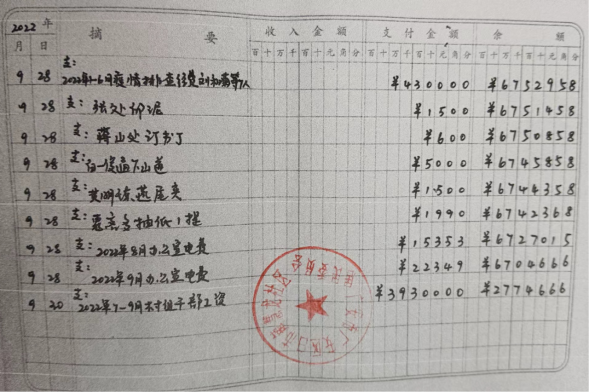 2022年 摘 要 收入金额 支付金额 余额
月 日 百十万千百十元角分 百十万千百十元角分 百十万千百十元角分
9 28 支:2022年1-6月疫情排查经费 等7人 ¥430000 ¥6752958
9 28 支: 印泥 ¥1500 ¥6751458
9 28 支: 订书丁 ¥600 ¥6750858
9 28 支: ¥5000 ¥6745858
9 28 支: 燕尾夹 ¥1500 ¥6744358
9 28 支: 抽纸1提 ¥1990 ¥6742368
9 28 支:2022年8月办公室电费 ¥15353 ¥6727015
9 28 支:2022年9月办公室电费 ¥22349 ¥6704666
9 30 支:2022年7-9月村组干部工资 ¥3930000 ¥2774666